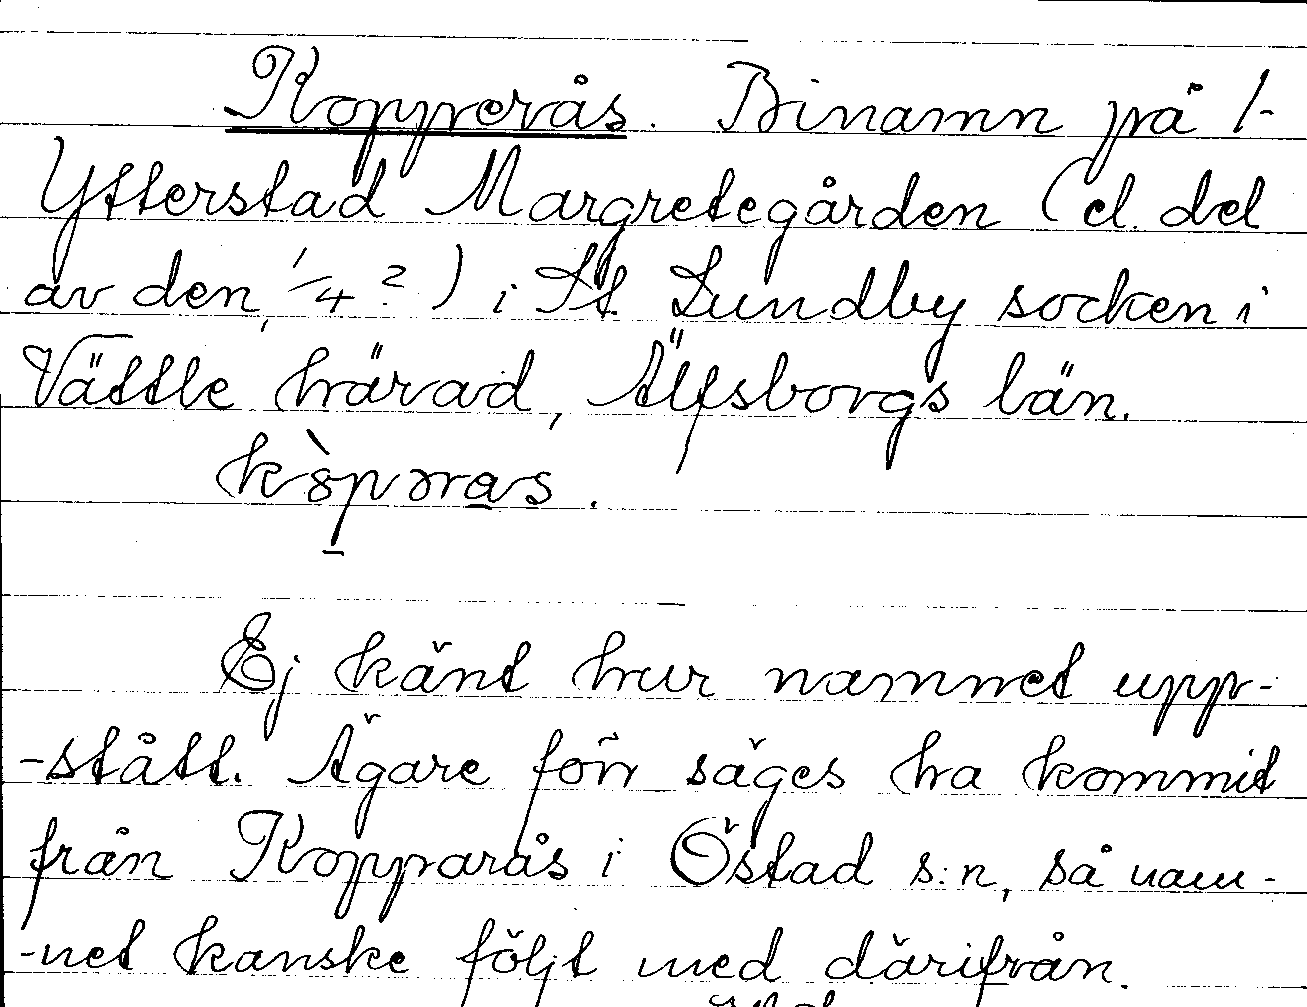 Kopperås. Binamn på 1-
Ytterstad Margretegården (el. del
av den, 1/4?) i St. Lundby socken i
Vättle härad, Älfsborgs län.
Ej känt hur namnet upp-
-stått. Ägare förr säges ha kommit
från Kopparås i Östad s:n, så nam-
-net kanske följt med därifrån.